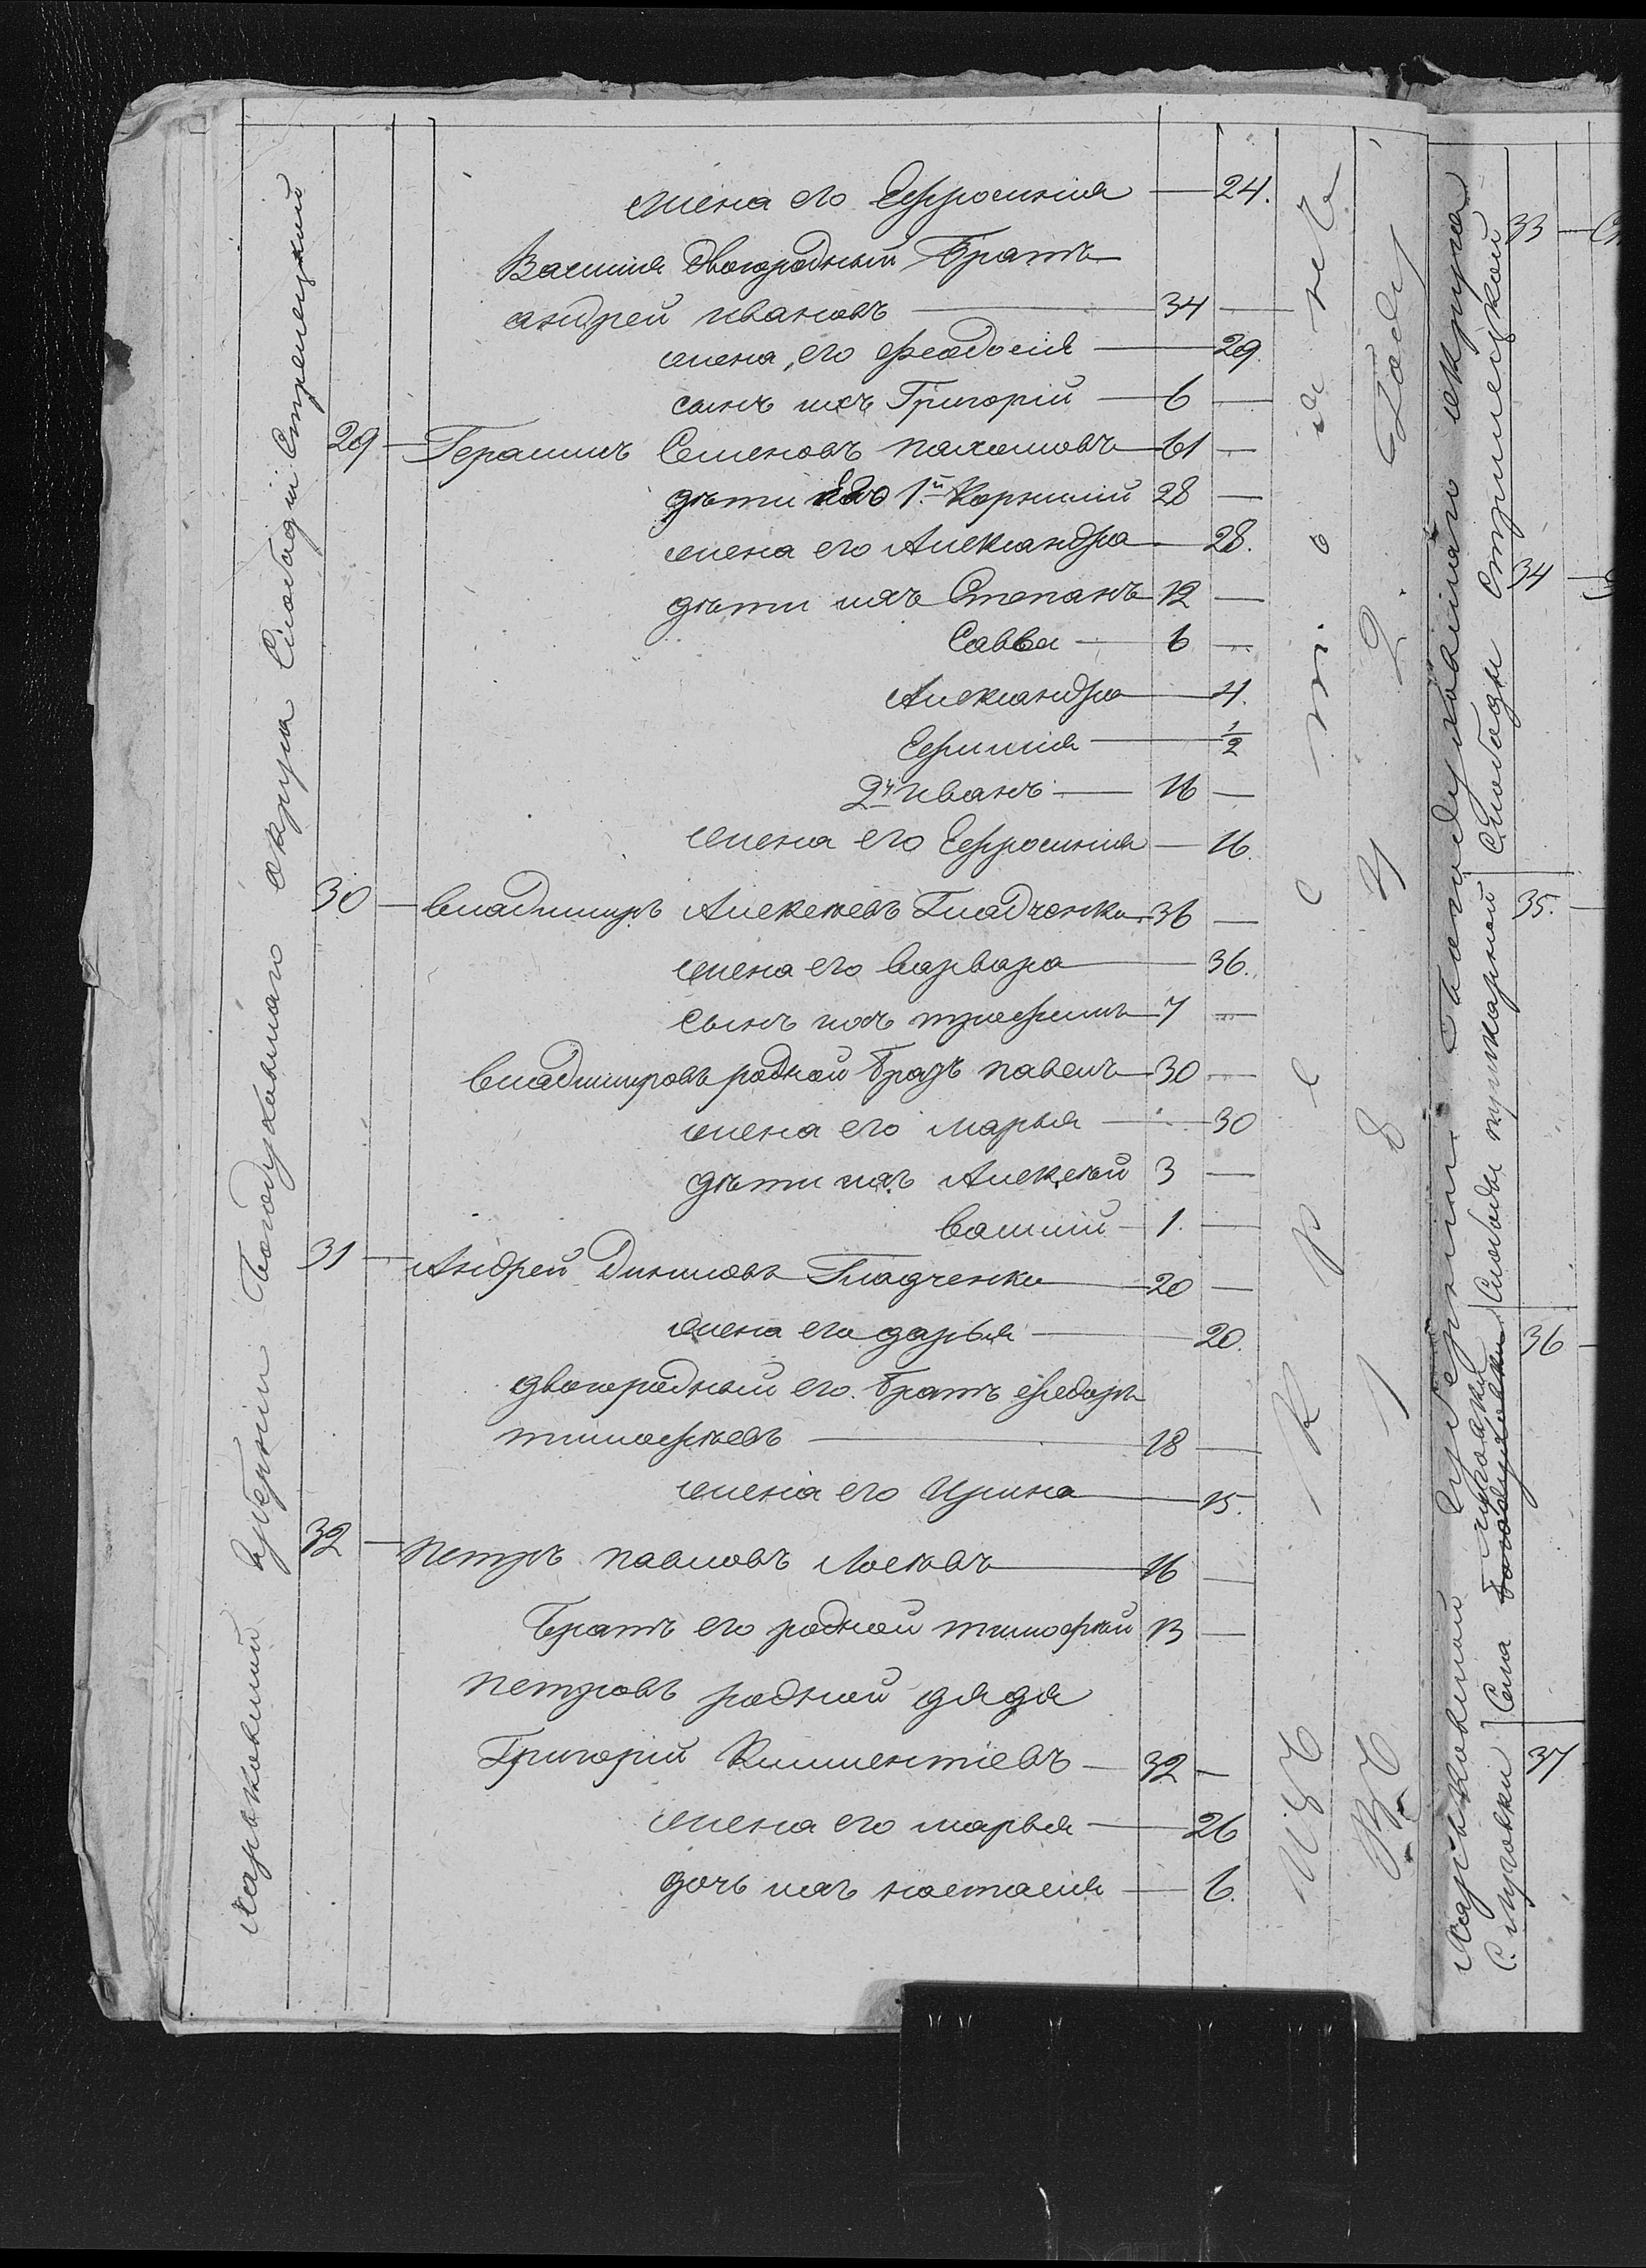 Харьковской губернии Богодуховского округа Слободы Стрелецкой
жена его Ефросиния — 24.
Василия двоюродный Братъ
андрей ивановъ — 34 —
жена, его феодосия — 29.
сынъ ихъ Григорій — 6 —
29 — Герасимъ Семеновъ пахомовъ — 61 —
дѣти его 1.й Корнилий 28 —
жена его Александра — 28.
дѣти ихъ Степанъ 12 —
Савва — 6 —
Александра — 4.
Ефимия — 1/2
2й иванъ — 16 —
жена его Ефросиния — 16.
30 — владимиръ Алексѣевъ Гладченко 36 —
жена его варвара — 36.
сынъ ихъ трофимъ — 7 —
владимировъ родной братъ павелъ — 30 —
жена его марья — 30
дѣти ихъ Алексѣй 3 —
василий — 1. —
31 — Андрей Даниловъ Гладченко — 20 —
жена его дарья — 20.
двоюродный его братъ федоръ
тимофѣевъ — 18 —
жена его Ирина — 15.
32 — петръ павловъ Лосѣвъ — 16 —
братъ его родной тимофѣй 13 —
петровъ родной дядя
Григорий Климентіевъ — 32 —
жена его марья — 26
дочь ихъ настасия — 6.
Изъ К р е с т
Въ 1 8 4 2. Году
Харьковской губернии Богодуховского округа
С. мурафки
Села мурафки
Слободы пушкарной
Слободы Стрелецкой
33 —
34
35. —
36 —
37